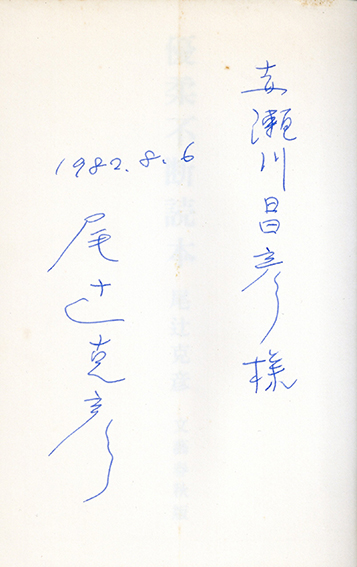 赤瀬川昌彦様
1982.8.6
尾辻克彦
優柔不断読本
尾辻克彦
文藝春秋版